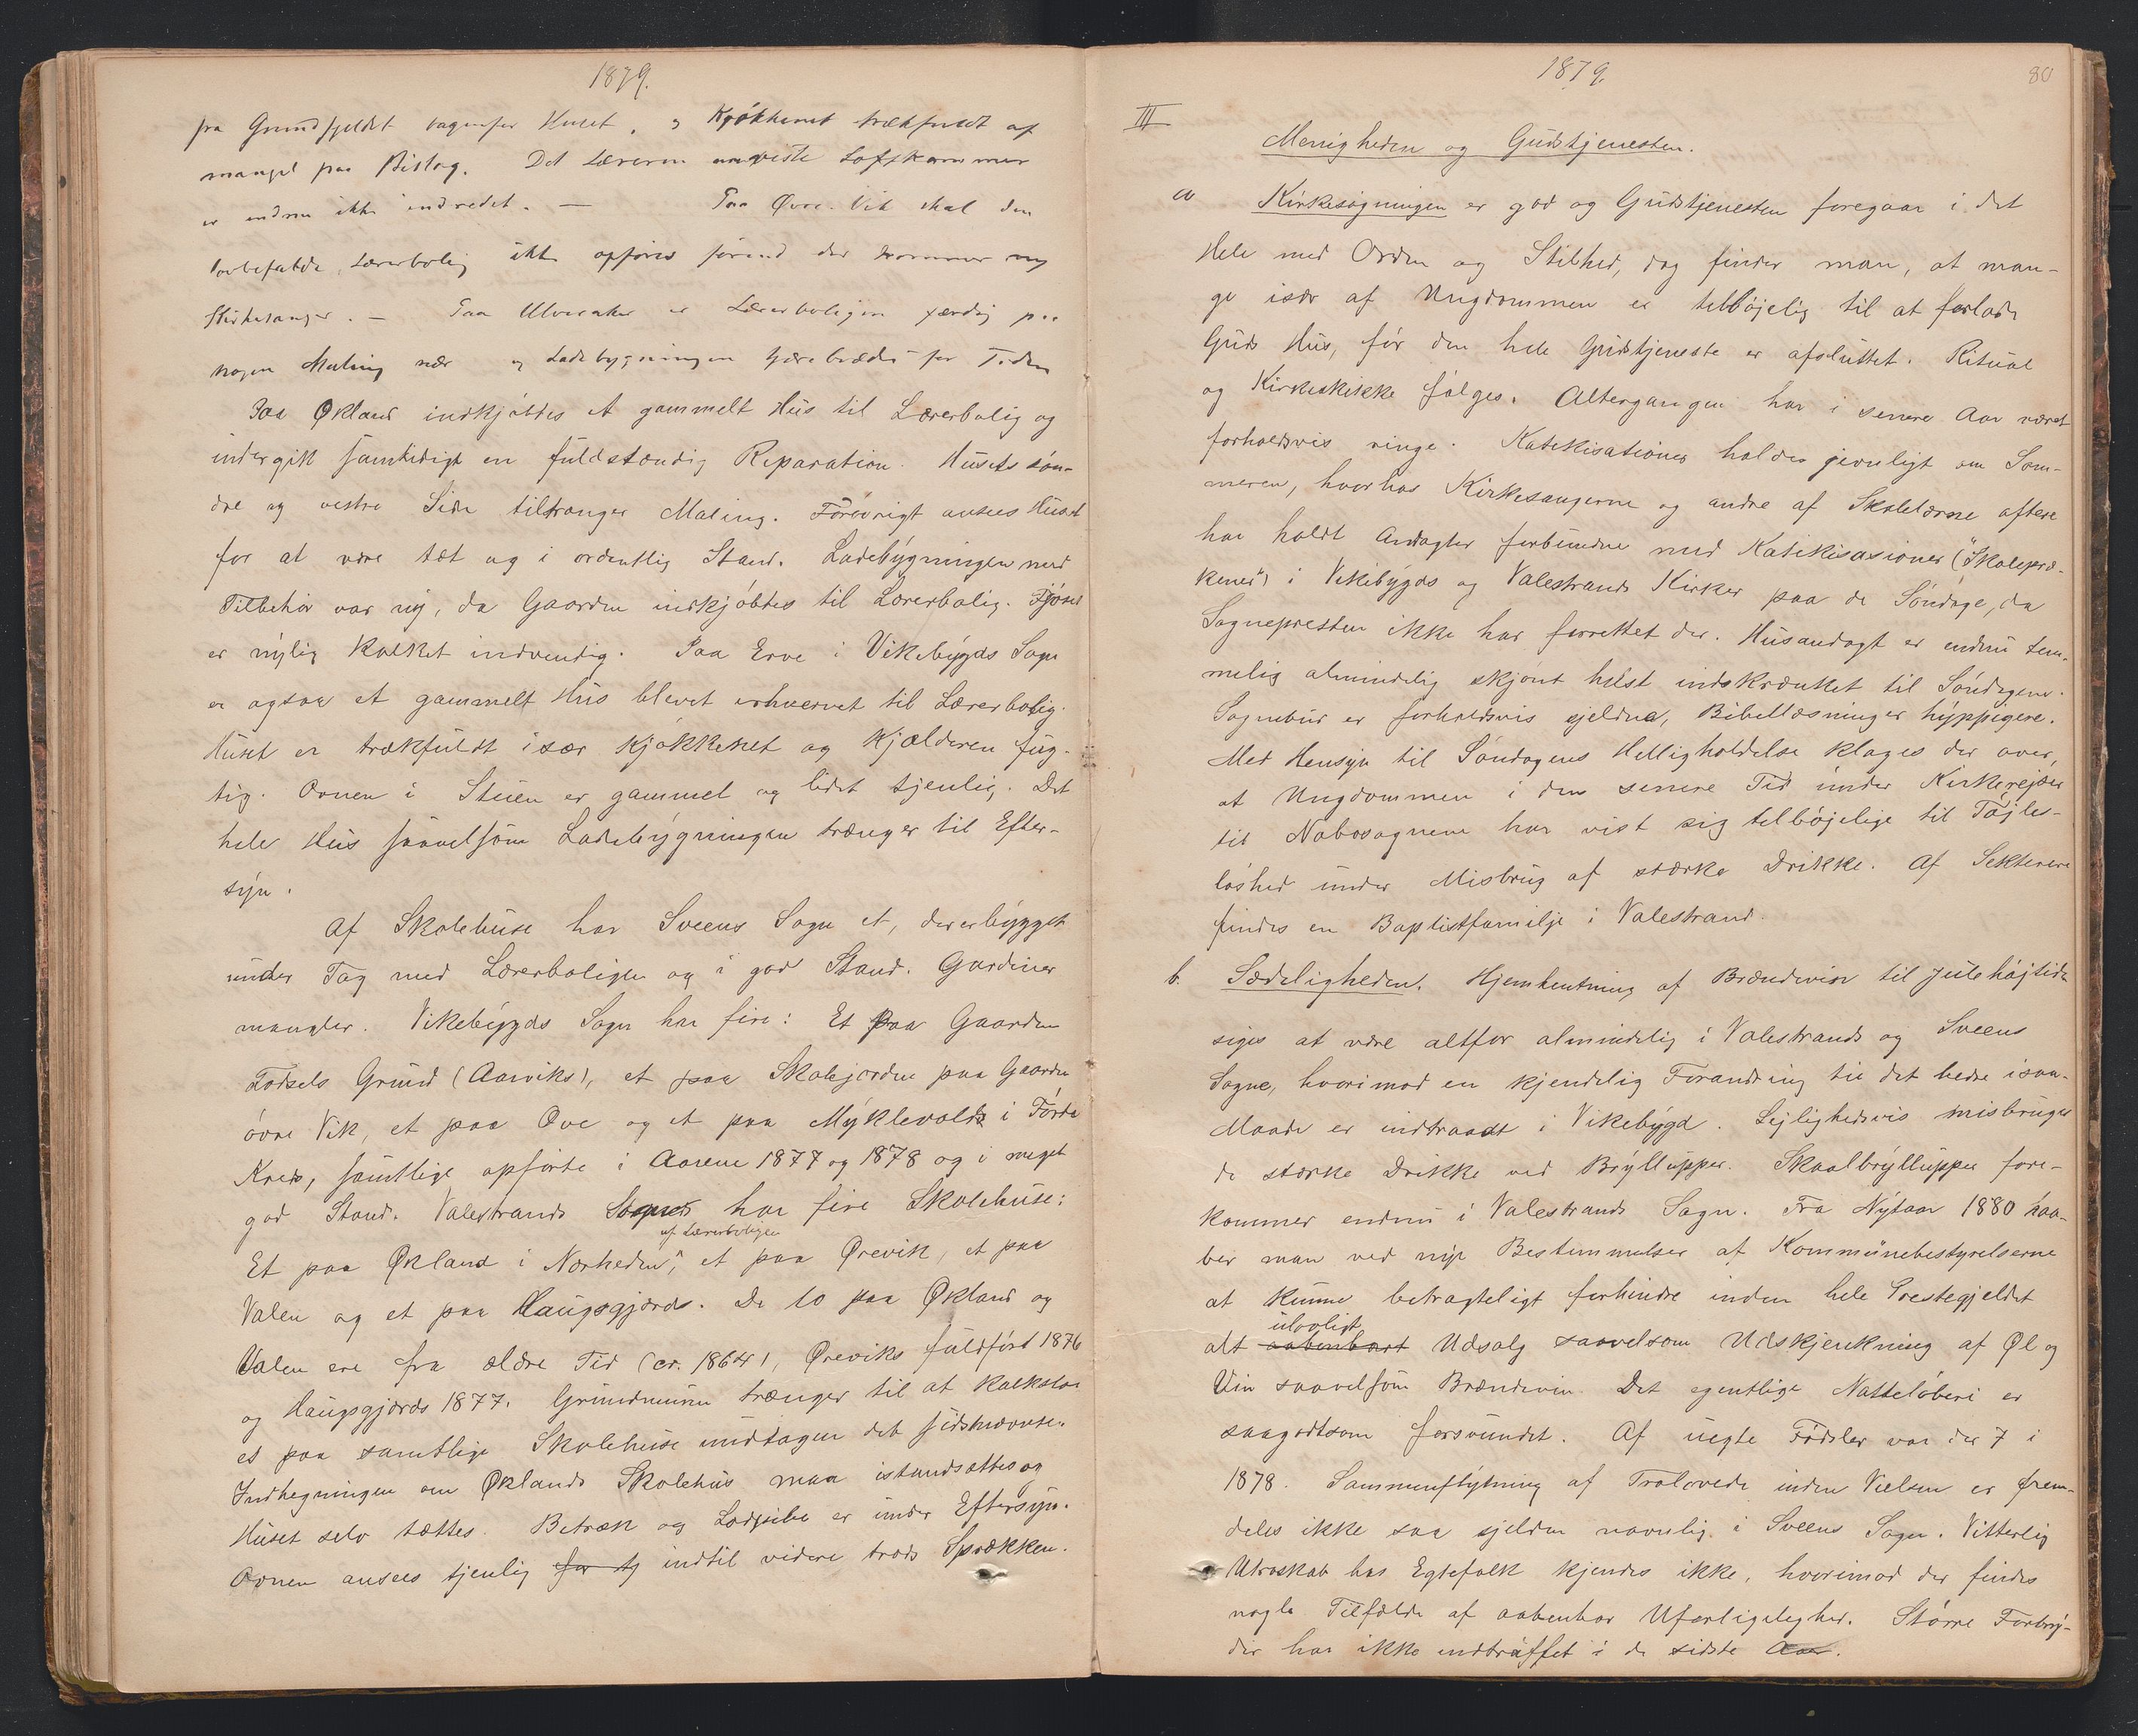 1879.
fra Grundfjeldet bagenfor Huset, og Kjøkkenet trækfuldt af
mangel paa Bislag. Det Læreren anviste Loftskammer
er endnu ikke indredet. — Paa Øvre-Vik skal den
lovbefalede Lærerbolig ikke opføres førend der kommer ny
Kirkesanger. — Paa Ulveraker er Lærerboligen færdig paa
nogen Maling nær og Ladebygningen for Tiden
Paa Økland indkjøbtes et gammelt Hus til Lærerbolig og
undergik samtidigt en fuldstændig Reparation. Husets søn-
dre og vestre Side tiltrænger Maling. Forøvrigt ansees Huset
for at være tæt og i ordentlig Stand. Ladebygningen med
Tilbehør var ny, da Gaarden indkjøbtes til Lærerbolig. Fjøset
er nylig kalket indvendig. Paa Erve i Vikebygds Sogn
er ogsaa et gammelt Hus blevet erhvervet til Lærerbolig.
Huset er trækfuldt især Kjøkkenet og Kjælderen fug-
tig. Ovnen i Stuen er gammel og lidet tjenlig. Det
hele Hus saavelsom Ladebygningen trænger til Efter-
syn.
Af Skolehuse har Sveens Sogn et, der er bygget
under Tag med Lærerboligen og i god Stand. Gardiner
mangler. Vikebygds Sogn har fire: Et paa Gaarden
Todsels Grund (Aarviks), et paa Skolejorden paa Gaarden
øvre Vik, et paa Ove og et paa Myklevolds i Førde
Kreds, samtlige opførte i Aarene 1877 og 1878 og i meget
god Stand. Valestrands Sogn har fire Skolehuse:
af Lærerboligen
Et paa Økland i Nærheden, et paa Ørevik, et paa
Valen og et paa Haugsgjærds. De to paa Økland og
Valen ere fra ældre Tid (cr. 1864), Øreviks fuldført 1876
og Haugsgjærds 1877. Grundmuren trænger til at kalkslaa
es paa samtlige Skolehuse undtagen det sidstnævnte.
Indhegningen om Øklands Skolehus maa istandsættes og
Huset selv tættes. Betræk og er under Eftersyn.
Ovnen ansees tjenlig for indtil videre trods Sprækken.
1879.
80
III
Menigheden og Gudstjenesten.
a Kirkesøgningen er god og Gudstjenesten foregaar i det
Hele med Orden og Stilhed, dog finder man, at man-
ge især af Ungdommen er tilbøjelig til at forlade
Guds Hus, før den hele Gudstjeneste er afsluttet. Ritual
og Kirkeskikke følges. Altergangen har i senere Aar været
forholdsvis ringe. Katekisationer holdes jevnligt om Som-
meren, hvorhos Kirkesangerne og andre af Skolelærerne oftere
har holdt Andagter forbundne med Katekisasioner ("Skolepræ-
kener") i Vikebygds og Valestrands Kirker paa de Søndage, da
Sognepresten ikke har forrettet der. Husandagt er endnu tem-
melig almindelig skjønt helst indskrænket til Søndagene.
Sognebud er forholdsvis sjeldne, Bibellæsninger hyppigere.
Med Hensyn til Søndagens Helligholdelse klages der over,
at Ungdommen i den senere Tid under Kirkerejser
til Nabosognene har vist sig tilbøjelige til Tøjles-
løshed under Misbrug af stærke Drikke. Af Sekterere
findes en Baptistfamilje i Valestrand.
b. Sædeligheden. Hjemhentning af Brændevin til Julehøjtiden
siges at være altfor almindelig i Valestrands og Sveens
Sogne, hvorimod en kjendelig Forandring til det bedre i saa-
Maade er indtraadt i Vikebygd. Lejlighedsvis misbruges
de stærke Drikke ved Brylluppper. Skaalbryllupper fore-
kommer endnu i Valestrands Sogn. Fra Nytaar 1880 haa-
ber man ved nye Bestemmelser af Kommunebestyrelserne
at kunne betragteligt forhindre inden hele Prestegjeldet
ulovligt
alt aabenbart Udsalg saavelsom Udskjenkning af Øl og
Vin saavelsom Brændevin. Det egentlige Natteløberi er
saagodtsom forsvundet. Af uegte Fødsler var der 7 i
1878. Sammenflytning af Trolovede inden Vielsen er frem-
deles ikke saa sjelden navnlig i Sveens Sogn. Vitterlig
Utroskab hos Egtefolk kjendes ikke, hvorimod der findes
nogle Tilfælde af aabenbar Uforligelighed. Større Forbry-
der har ikke indtruffet i de sidste Aar.